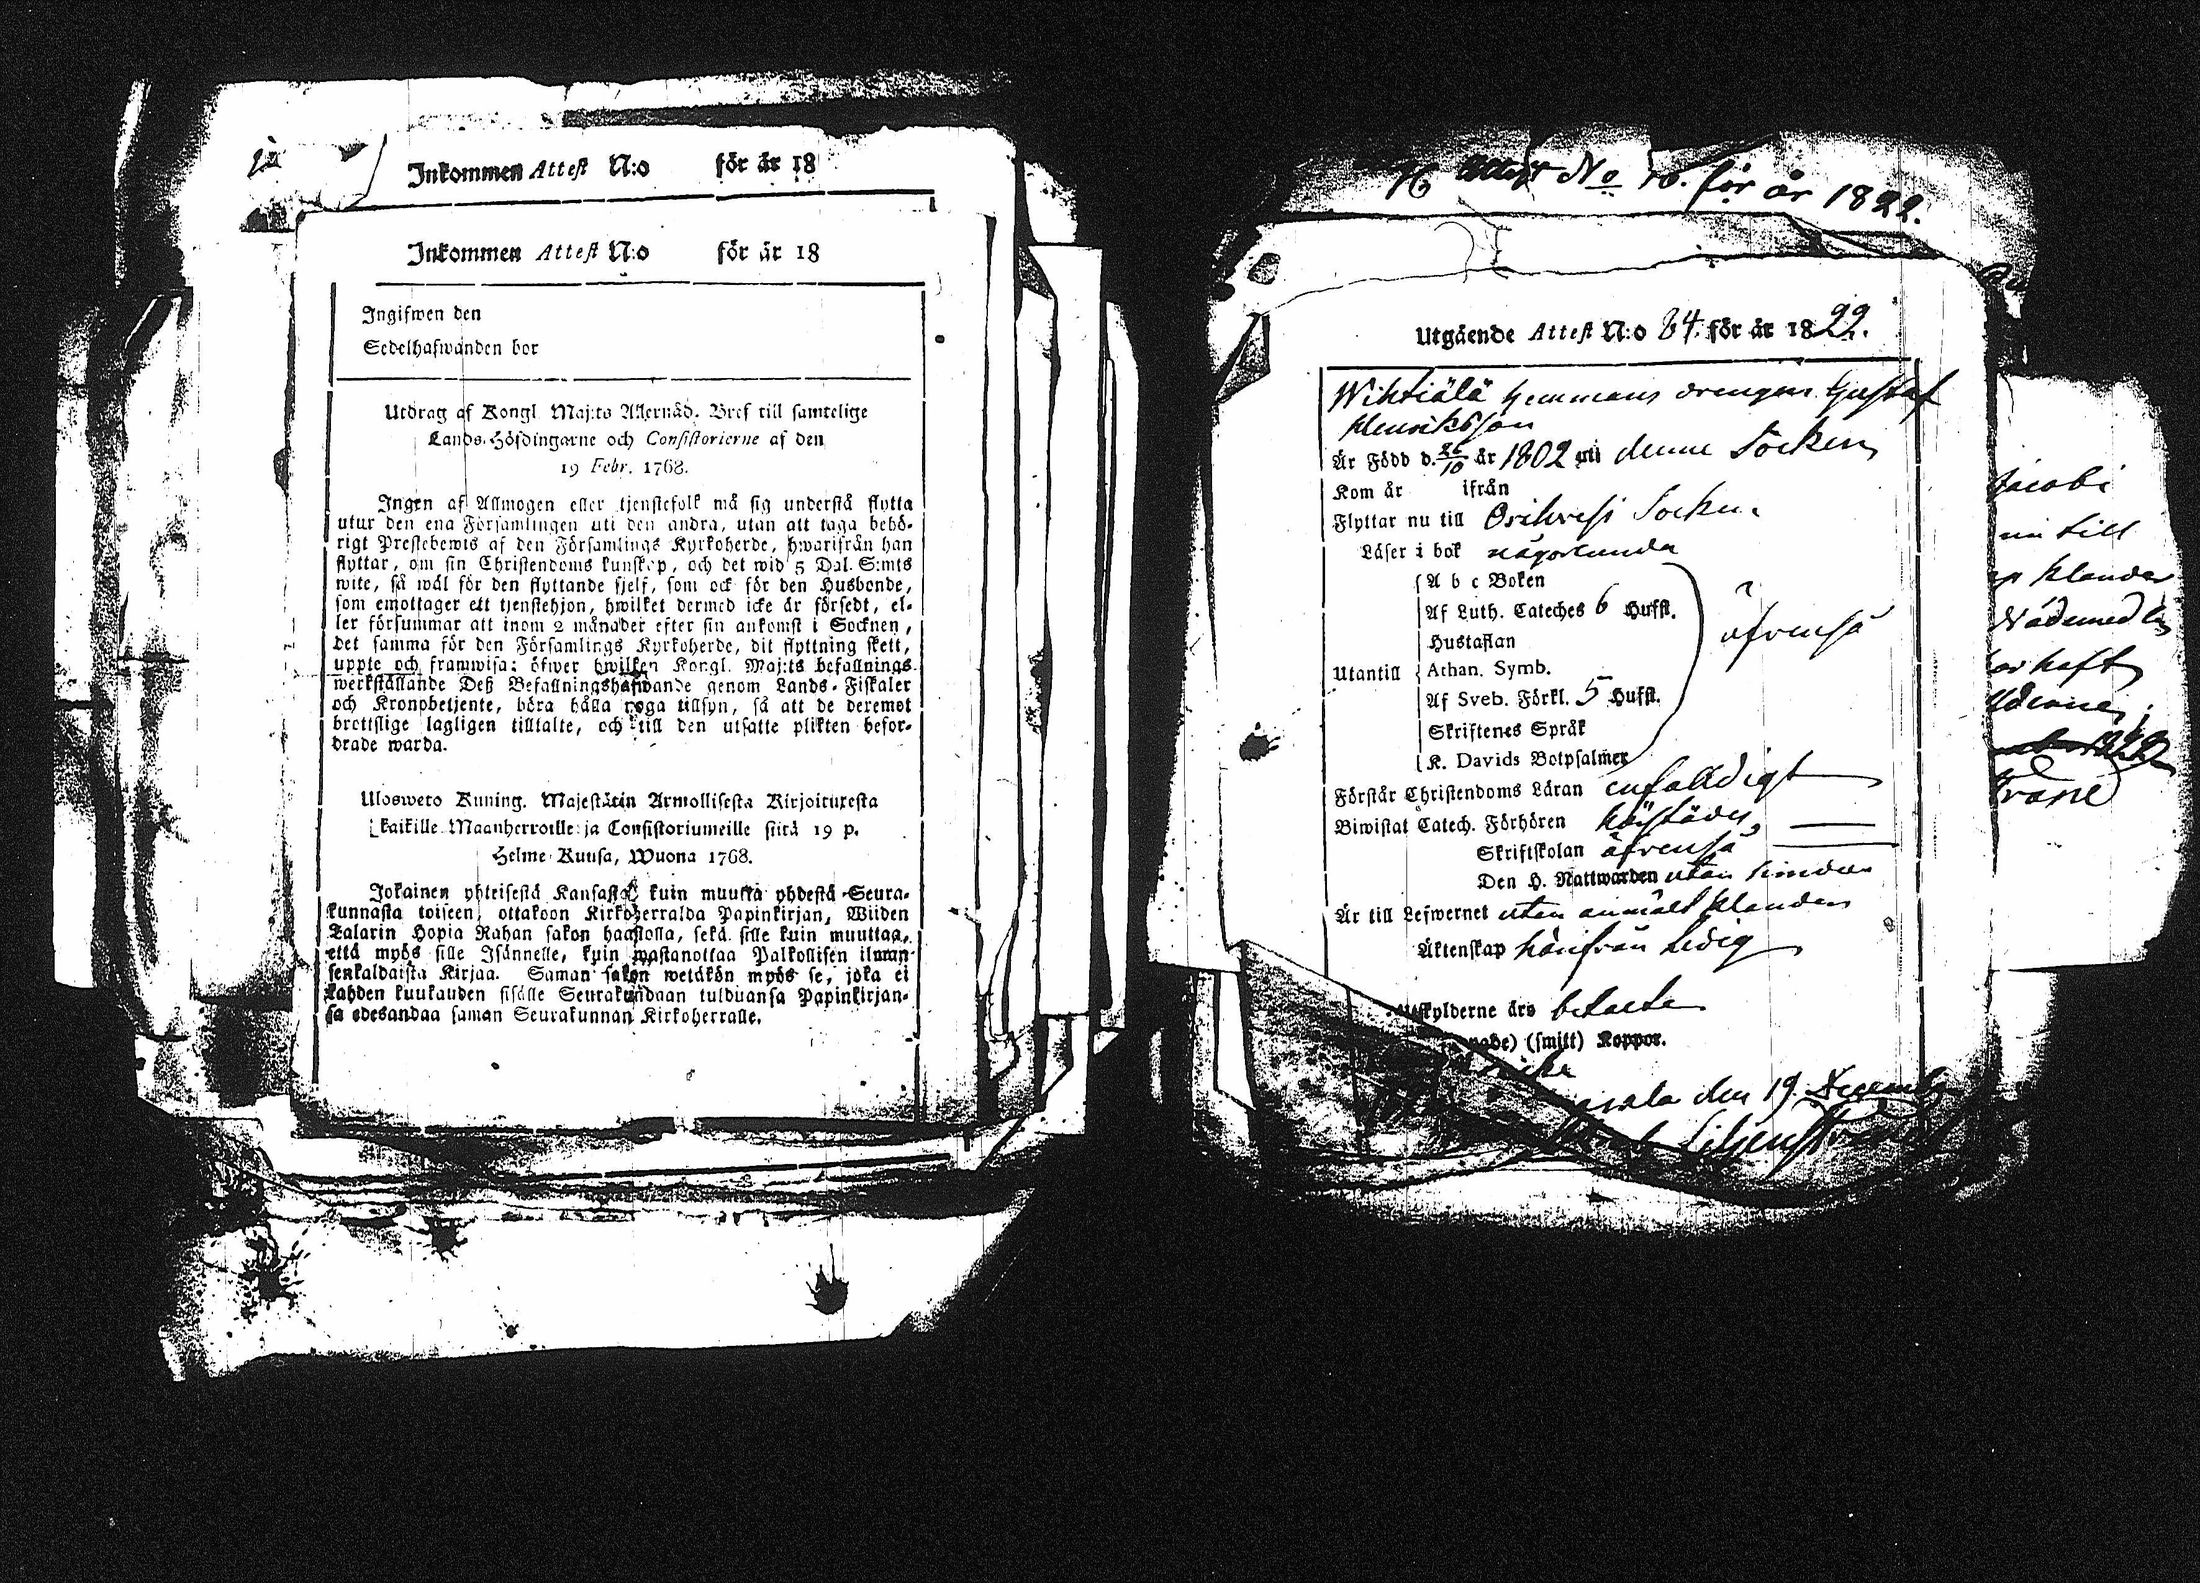 Inkommen Attest N:o för år 18
Inkommen Attest N:o för år 18
Ingifwen den
Sedelhafwanden bor
Utdrag af Kongl. Maj:ts Allernåd. Bref till samtelige
Lands-Höfdingarne och Consistorierne af den
19 Febr. 1768.
Ingen af Allmogen eller tjenstefolk må sig understå flytta
utur den ena Församlingen uti den andra, utan att taga behö-
rigt Prestebewis af den Församlings Kyrkoherde, hwarifrån han
flyttar, om sin Christendoms kunskap, och det wid 5 Dal. S:mts
wite, så wäl för den flyttande sjelf, som ock för den Husbonde,
som emottager ett tjenstehjon, hwilket dermed icke är försedt, el-
ler försummar att inom 2 månader efter sin ankomst i Socknen,
det samma för den Församlings Kyrkoherde, dit flyttning skett,
uppte och framwisa: öfwer hwilken Kongl. Maj:ts befallnings
werkställande Deß Befallningshafwande genom Lands-Fiskaler
och Kronobetjente, böra hålla noga tillsyn, så att de deremot
brottslige lagligen tilltalte, och till den utsatte plikten befor-
drade warda.
Ulosweto Kuning. Majestätin Armollisesta Kirjoituxesta
kaikille Maanherroille ja Consistoriumeille siitä 19 p.
Helme-Kuusa, Wuona 1768.
Jokainen yhteisestä Kansasta, kuin muutta yhdestä Seura-
kunnasta toiseen, ottakoon Kirkoherralda Papinkirjan, Wiiden
Talarin Hopia Rahan sakon haastolla, sekä sille kuin muuttaa,
että myös sille Isännelle, kuin wastanottaa Palkollisen ilman
senkaldaista Kirjaa. Saman sakon wetäkön myös se, joka ei
kahden kuukauden sisälle Seurakundaan tulduansa Papinkirjan-
sa edesandaa saman Seurakunnan Kirkoherralle.
attest No 10. för år 1822.
Utgående Attest N:o 84. för år 1822.
Wihtiälä hemmans drengen Gustaf
Henriksson
Är Född d. 26/10 år 1802 uti denne Socken
Kom år ifrån
Flyttar nu till Orihvesi Socken.
Läser i bok någorlunda
A b c Boken
Af Luth. Cateches 6 Hufst.
Hustaflan
Utantill Athan. Symb. äfvenså
Af Sveb. Förkl. 5 Hufst.
Skriftenes Språk
K. Davids Botpsalmer
Förstår Christendoms Läran enfalldigt
Biwistat Catech. Förhören
Skriftskolan äfvenså
Den H. Nattwarden utan hinder
Är till Lefwernet utan anmält klander
Äktenskap härifrån Ledig
Utskylderne års betalte
(smitt) Koppor.
den 19. December
Liljenstrand
Jacobi
nu till
klander